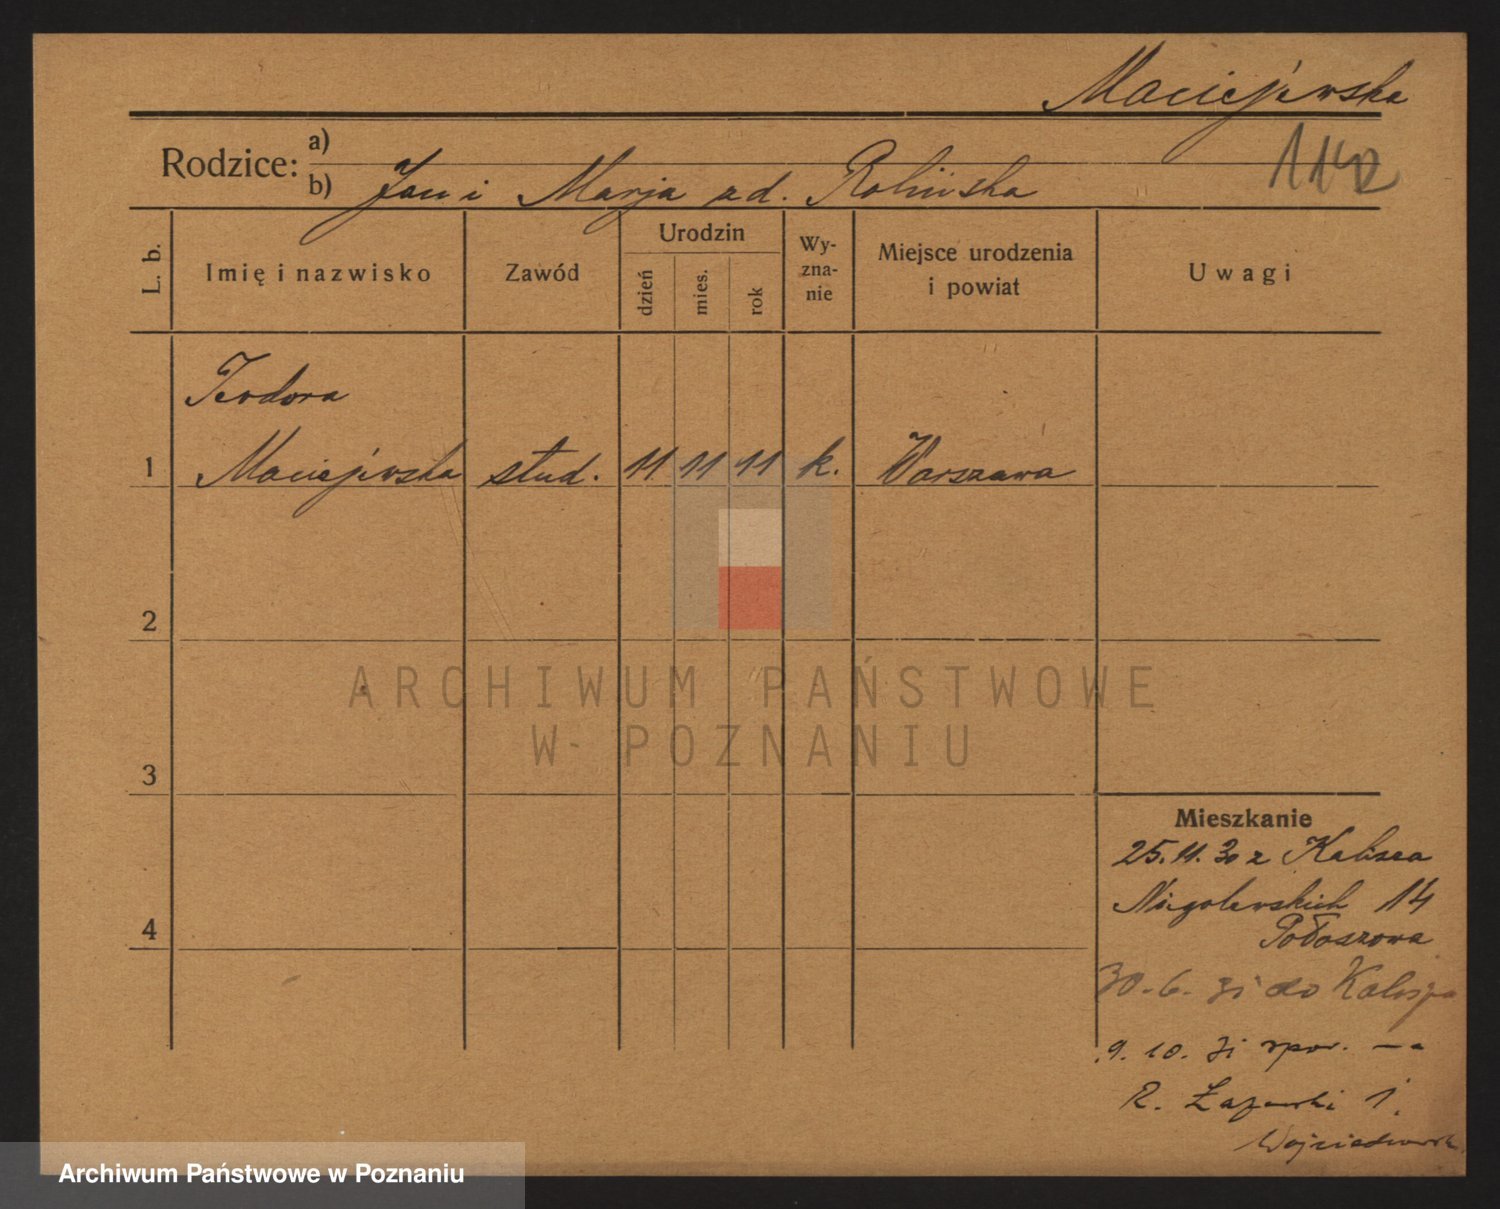 Maciejewska
1142
Rodzice: a)
b) Jan i Marja zd. Rolińska
L. b.
Imię i nazwisko
Zawód
Urodzin
dzień
mies.
rok
Wy-
zna-
nie
Miejsce urodzenia
i powiat
Uwagi
Teodora
1 Maciejewska stud. 11 11 11 k. Warszawa
2
ARCHIWUM PAŃSTWOWE
W POZNANIU
3
Mieszkanie
25.11.30 z Kalisza
Niegolewskich 14
4
30.-6. 31 do Kalisza
9. 10. 31 spow.
R. Łazarski 1.
Archiwum Państwowe w Poznaniu